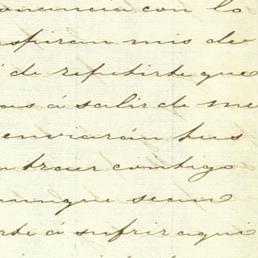 onancia con lo
spiran mis de
de repetirte que
as á salir de me
enviarán tus
traer contigo
unque sean
rte á sufrir aqui